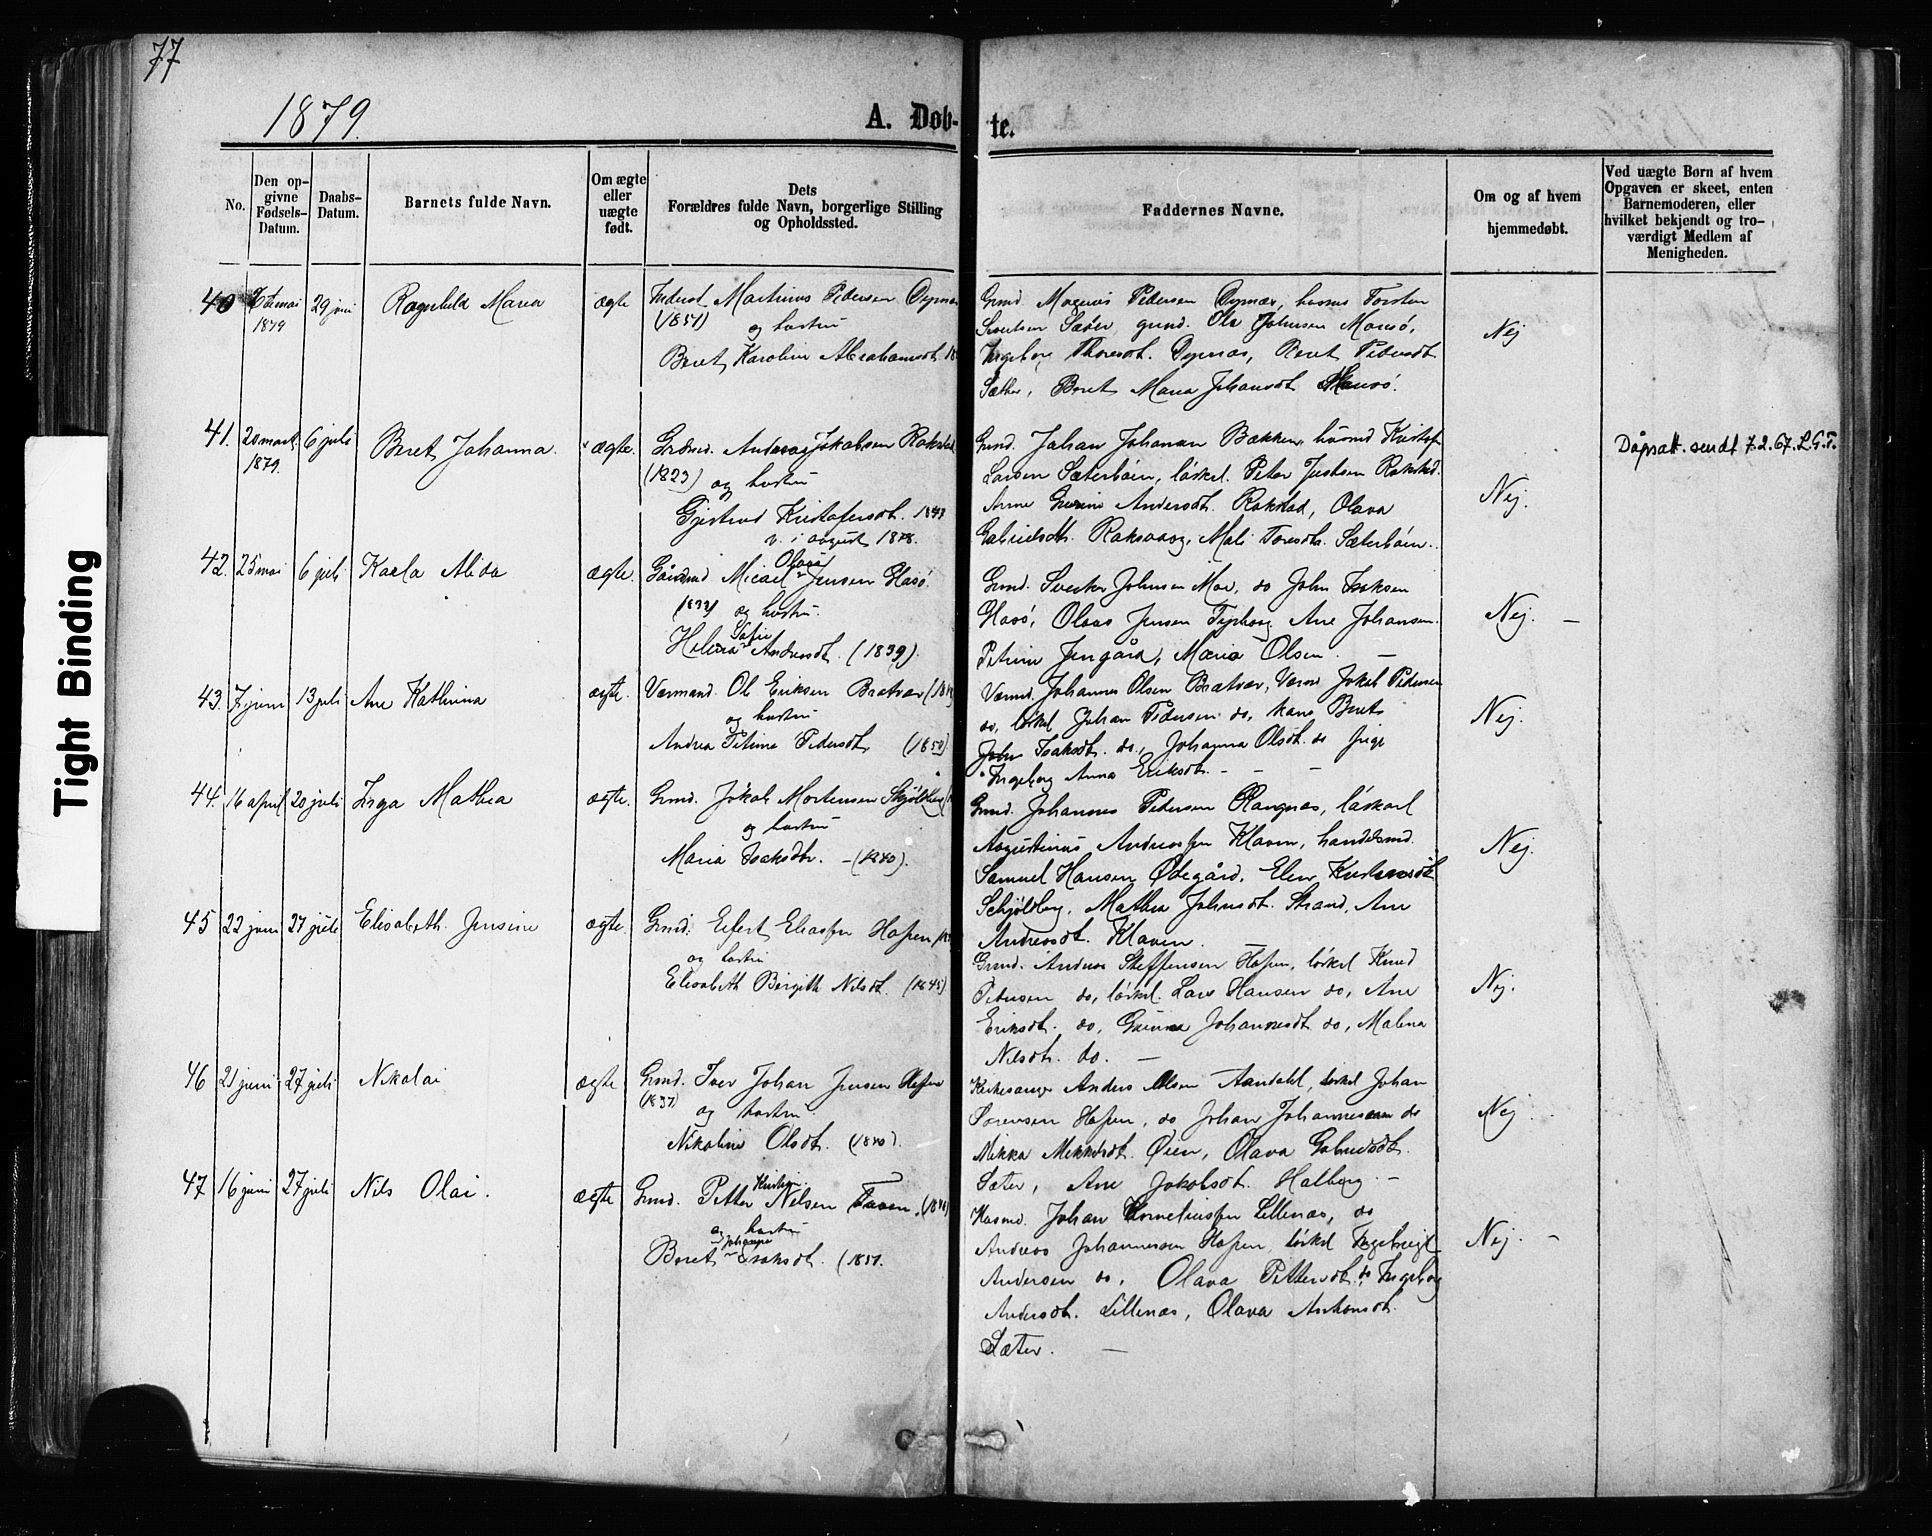 77
1879.
A. Døb- te.
No.
Den op-
givne
Fødsels-
Datum.
Daabs-
Datum.
Barnets fulde Navn.
Om ægte
eller
uægte
født.
Dets
Forældres fulde Navn, borgerlige Stilling
og Opholdssted.
Faddernes Navne.
Om og af hvem
hjemmedøbt.
Ved uægte Børn af hvem
Opgaven er skeet, enten
Barnemoderen, eller
hvilket bekjendt og tro-
værdigt Medlem af
Menigheden.
Tight Binding
40 mai 1879 29 juni Ragnhild Maria ægte Inderst Martinus Pedersen Dyrnæs
(1851) og hustru
Beret Karoline Abrahamsdt.
Grmd. Magnus Pedersen Dyrnæs, Torsten
Sivertsen Sæter, grmd. Ole Johnsen Mausø,
Ingeborg Thoresdt. Dyrnæs, Beret Pedersdt.
Sæther, Beret Maria Johansdt Mausø.
Nej
41. 20 mart. 1879. 6 juli Beret Johanna. ægte. Grdmd. Andreas Jakobsen Rokstad
(1823) og hustru
Gjertrud Kristofersdt.
v. i august 1878.
Grmd. Johan Johansen Bakken, husmd Kristof.
Larsen Sæterbøen, løskrl. Peter Justsen Rokstad.
Anne Andersdt. Rokstad, Olava
Gabrielsdt. Raksvaag, Mali Toresdt. Sæterbøen.
Nej.
Dåpsatt. sendt 7.2.67. L.G.T.
42. 25 mai 6 juli Karla Alida ægte. Gårdmd Micael Olaus Jensen Hasø.
og hustru
Helena Sofie Andersdt. (1839).
Grmd. Johnsen Moe, do John Isaksen
Hasø, Olaus Jensen Ane Johansen.
Petrine Maria Olsen. —
Nej. —
43. 7 juni 13 juli Ane Kathrina ægte. Værmand. Ole Eriksen Bratvær
og hustru
Andrea Petrine Pedersdt. (1850).
Værmd. Johannes Olsen Bratvær, Værmd Jokob Pedersen
do, løskrl Johan Pedersen do, kone Beret
Isaksdt. do, Johanna Olsdt. do Inge
Ingeborg Anna Eriksdt. - - -
Nej.
44. 16 april 20 juli Inga Mathea ægte. Grmd. Jokob Mortensen Skjøldberg
og hustru
Maria Isaksdtr. - (1840).
Grmd. Johannes Pedersen Rangnæs, løskarl
Augustinus Andreassen Klaven, handelsmd.
Samuel Hansen Ødegård. Elen Kristensdt
Schjøldberg, Mathea Johnsdt. Strand, Ane
Andreasdt. Klaven.
Nej.
45 22 juni 27 juli Elisabeth Jensine ægte. Grmd. Eliassen Hopen
og hustru
Elisabeth Birgith Nilsdt. (1845)
Grmd. Andreas Steffensen Hopen, løskrl Knud
Petersen do, løskrl. Lars Hansen do, Ane
Eriksdt. do, Johannesdt do, Malena
Nilsdt. do. —
Nej.
46 21 juni 27 juli Nikolai ægte Grmd. Iver Johan Jensen Hopen
(1837) og hustru
Nikoline Olsdt. (1840).
Kirkesanger Anders Olsen Aandahl, løskrl Johan
Sørensen Hopen, do Johan Johannesen do
Mikka Mikkelsdt. Øien, Olava Gabrielsdt.
Sæter, Ane Jakobsdt. Halberg. -
Nej
47 16 juni 27 juli Nils Olai. ægte Grmd. Petter Kristian Nilsen
og hustru
Beret Johanna Isaksdt. (1851.
Husmd. Johan Korneliussen Lillenæs, do
Andreas Johannessen Hopen, løskrl Ingebrigt
Andersen do. Olava Pettersdt. do, Ingeborg
Andersdt. Lillenæs, Olava Antonsdt.
Sæter. —
Nej. -